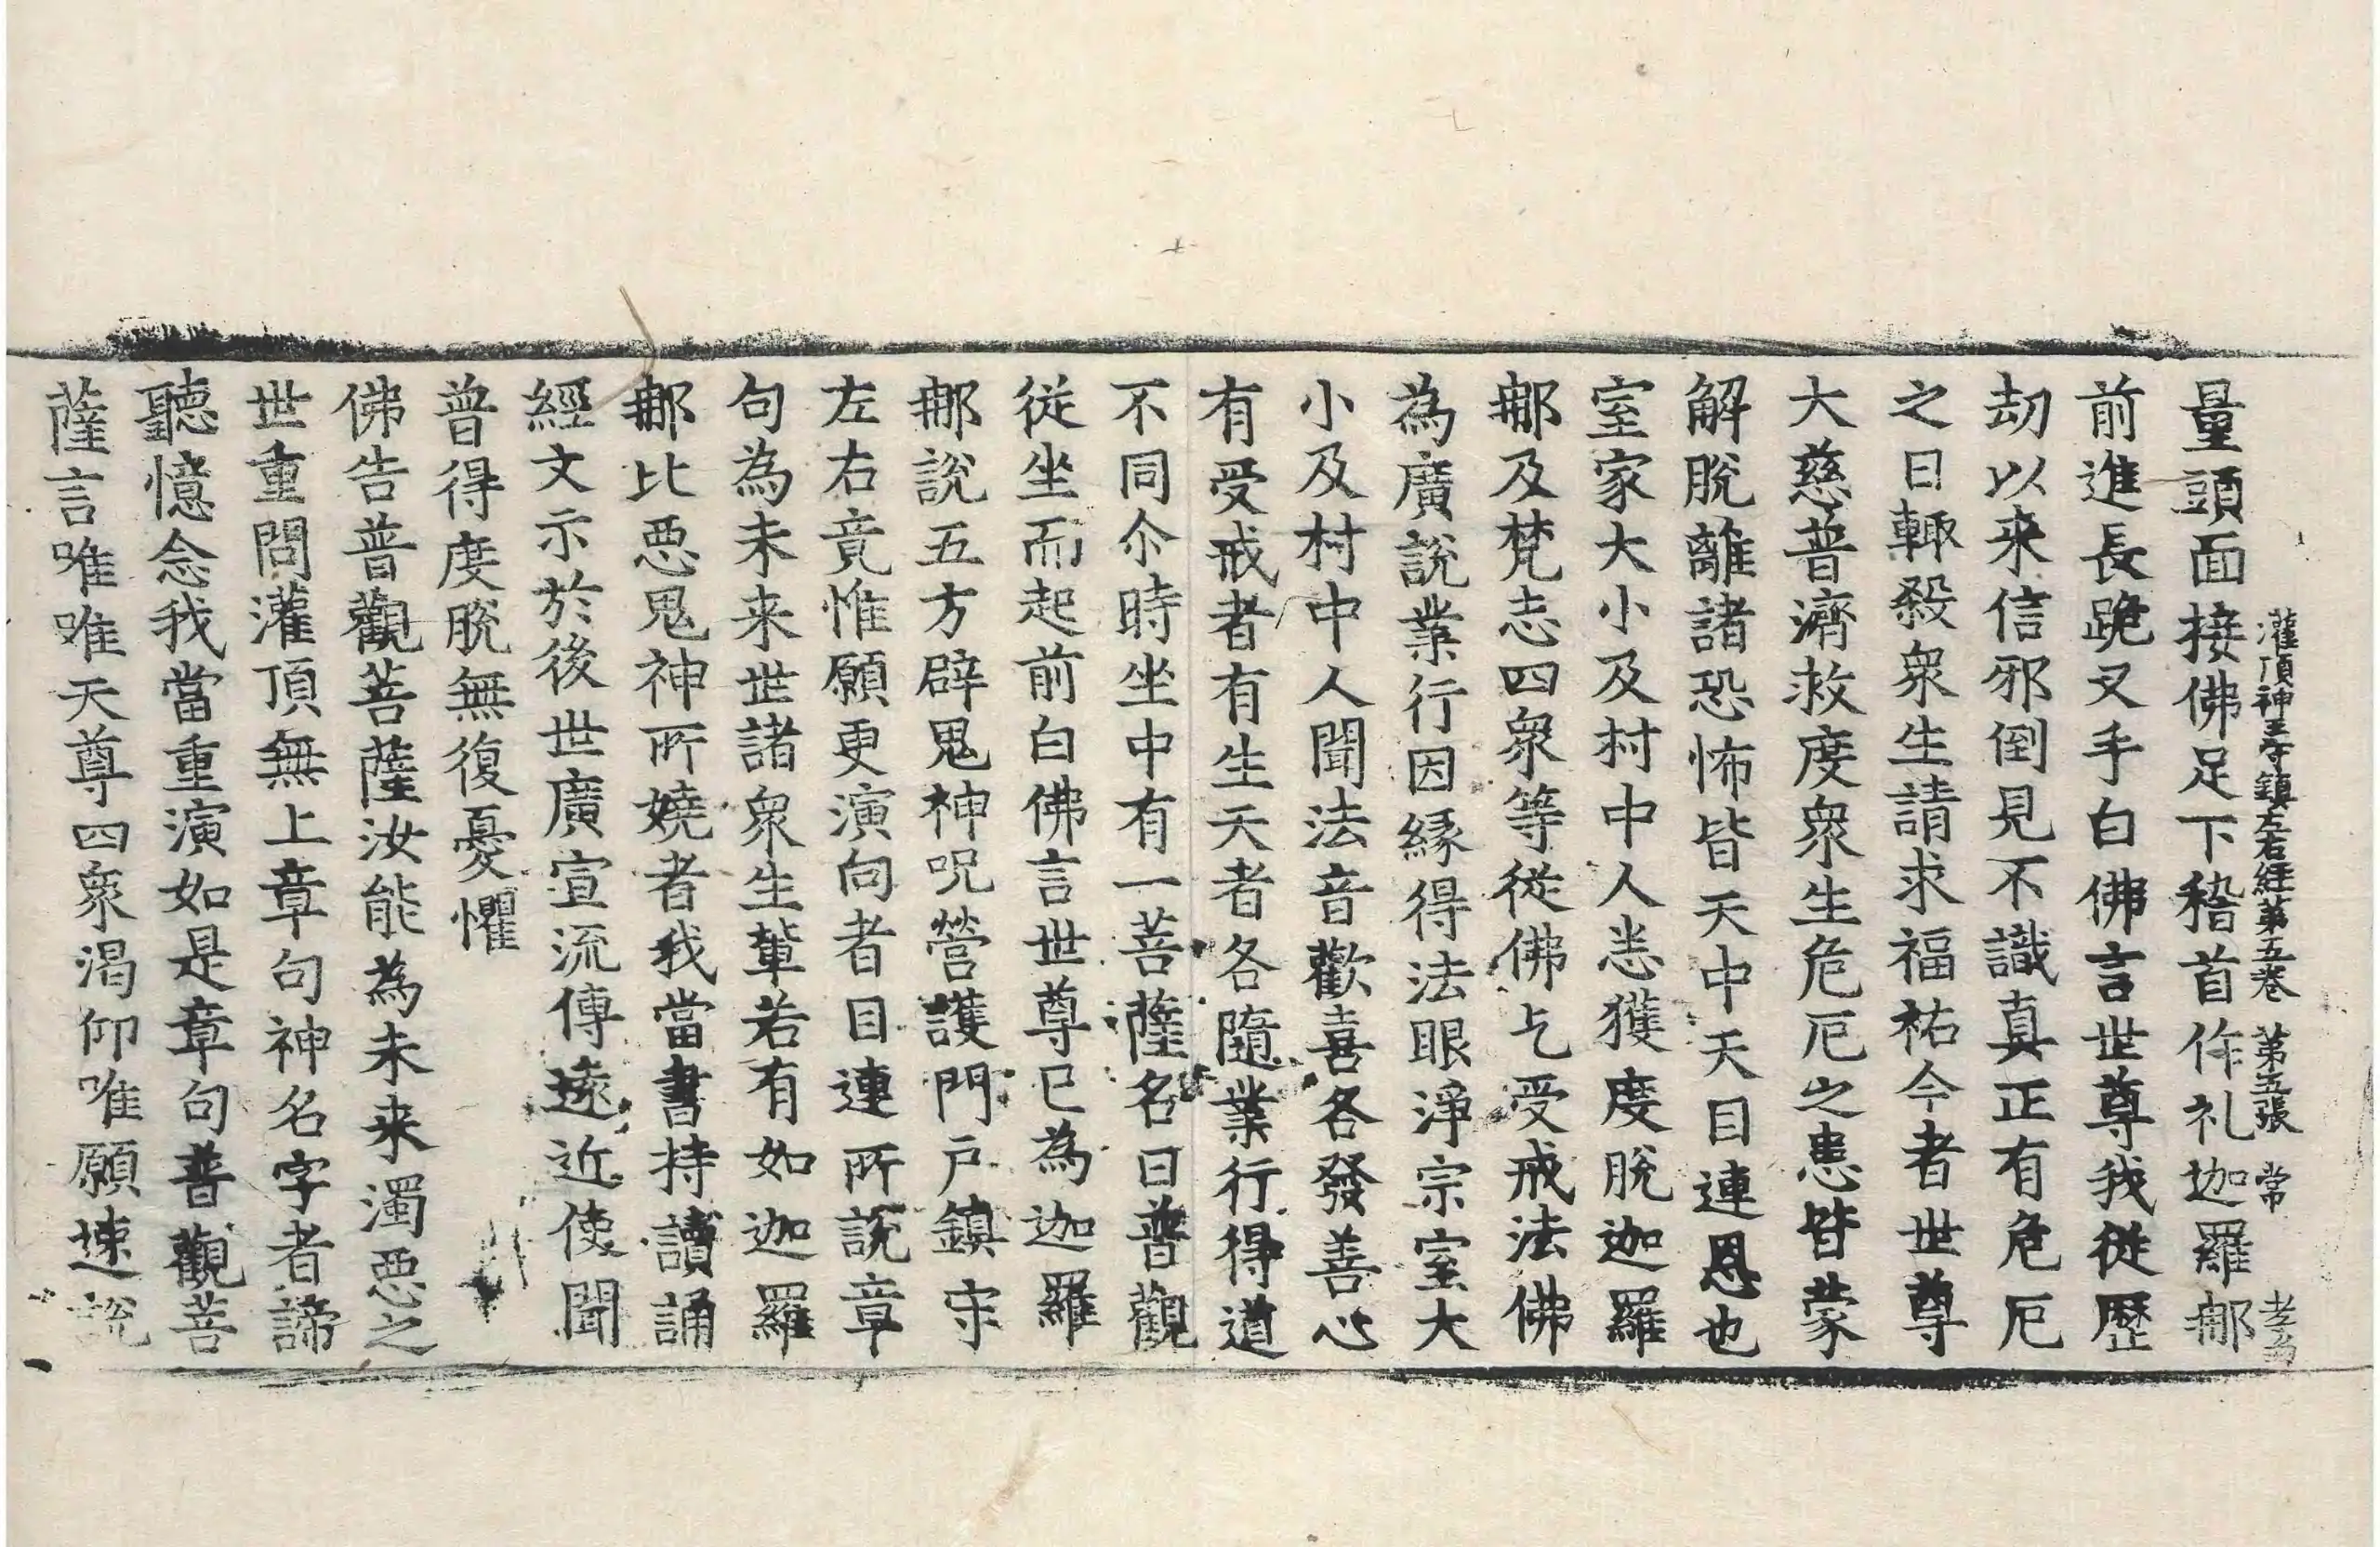 灌頂神王守鎮左右經第五卷 第五張 常
量頭面接佛足下稽首作礼迦羅𨚗
前進長跪叉手白佛言世尊我從歷
劫以来信邪倒見不識真正有危厄
之日輙殺衆生請求福祐今者世尊
大慈普濟救度衆生危厄之患皆蒙
解脫離諸恐怖皆天中天目連恩也
室家大小及村中人悉獲度脫迦羅
𨚗及梵志四衆等從佛乞受戒法佛
為廣說業行因緣得法眼淨宗室大
小及村中人聞法音歡喜各發善心
有受戒者有生天者各隨業行得道
不同尒時坐中有一菩薩名曰普觀
從坐而起前白佛言世尊已為迦羅
𨚗說五方辟鬼神呪營護門戶鎮守
左右竟惟願更演向者目連所說章
句為未来世諸衆生輩若有如迦羅
𨚗比惡鬼神所嬈者我當書持讀誦
經文示於後世廣宣流傳遠近使聞
普得度脫無復憂懼
佛告普觀菩薩汝能為未来濁惡之
世重問灌頂無上章句神名字者諦
聽憶念我當重演如是章句普觀菩
薩言唯唯天尊四衆渴仰唯願速說